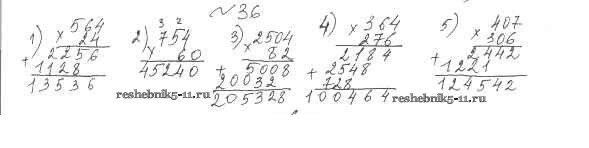 № 36
1) × 564
24
+ 2256
1128
13536
2) 3 2
× 754
60
45240
3) × 2504
82
+ 5008
20032
205328
4) × 364
276
2184
+ 2548
728
100464
5) × 407
306
+ 2442
1221
124542
reshebnik5-11.ru
reshebnik5-11.ru